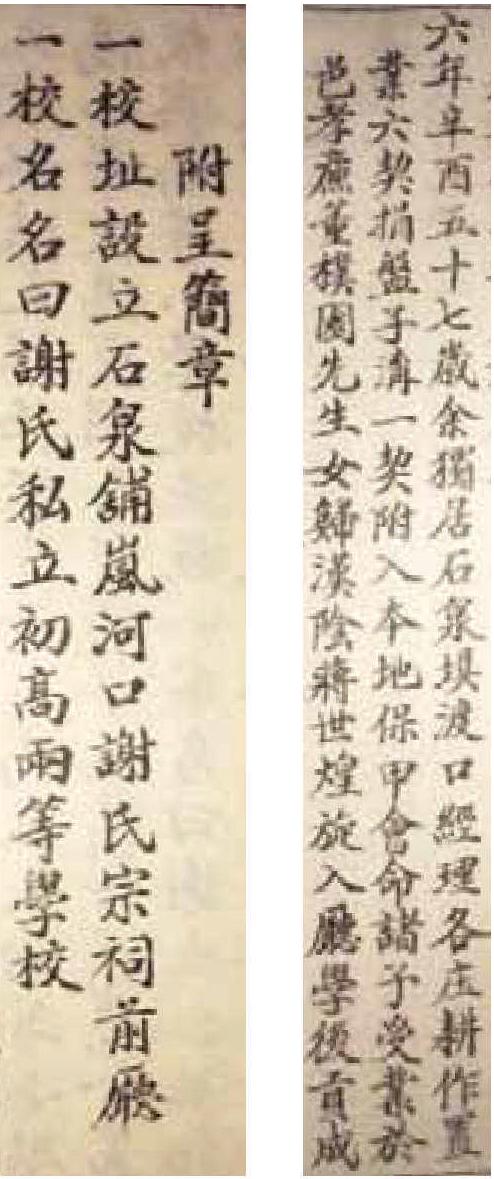 六年辛酉五十七歲余獨居石泉埧渡口經理各庄耕作置
業六契捐盤子溝一契附入本地保甲會命諸子受業於
邑孝廉董樸園先生女歸漢陰蔣世煌旋入廳學後貢成
附呈簡章
一校址設立石泉舖嵐河口謝氏宗祠前廳
一校名名曰謝氏私立初高兩等學校